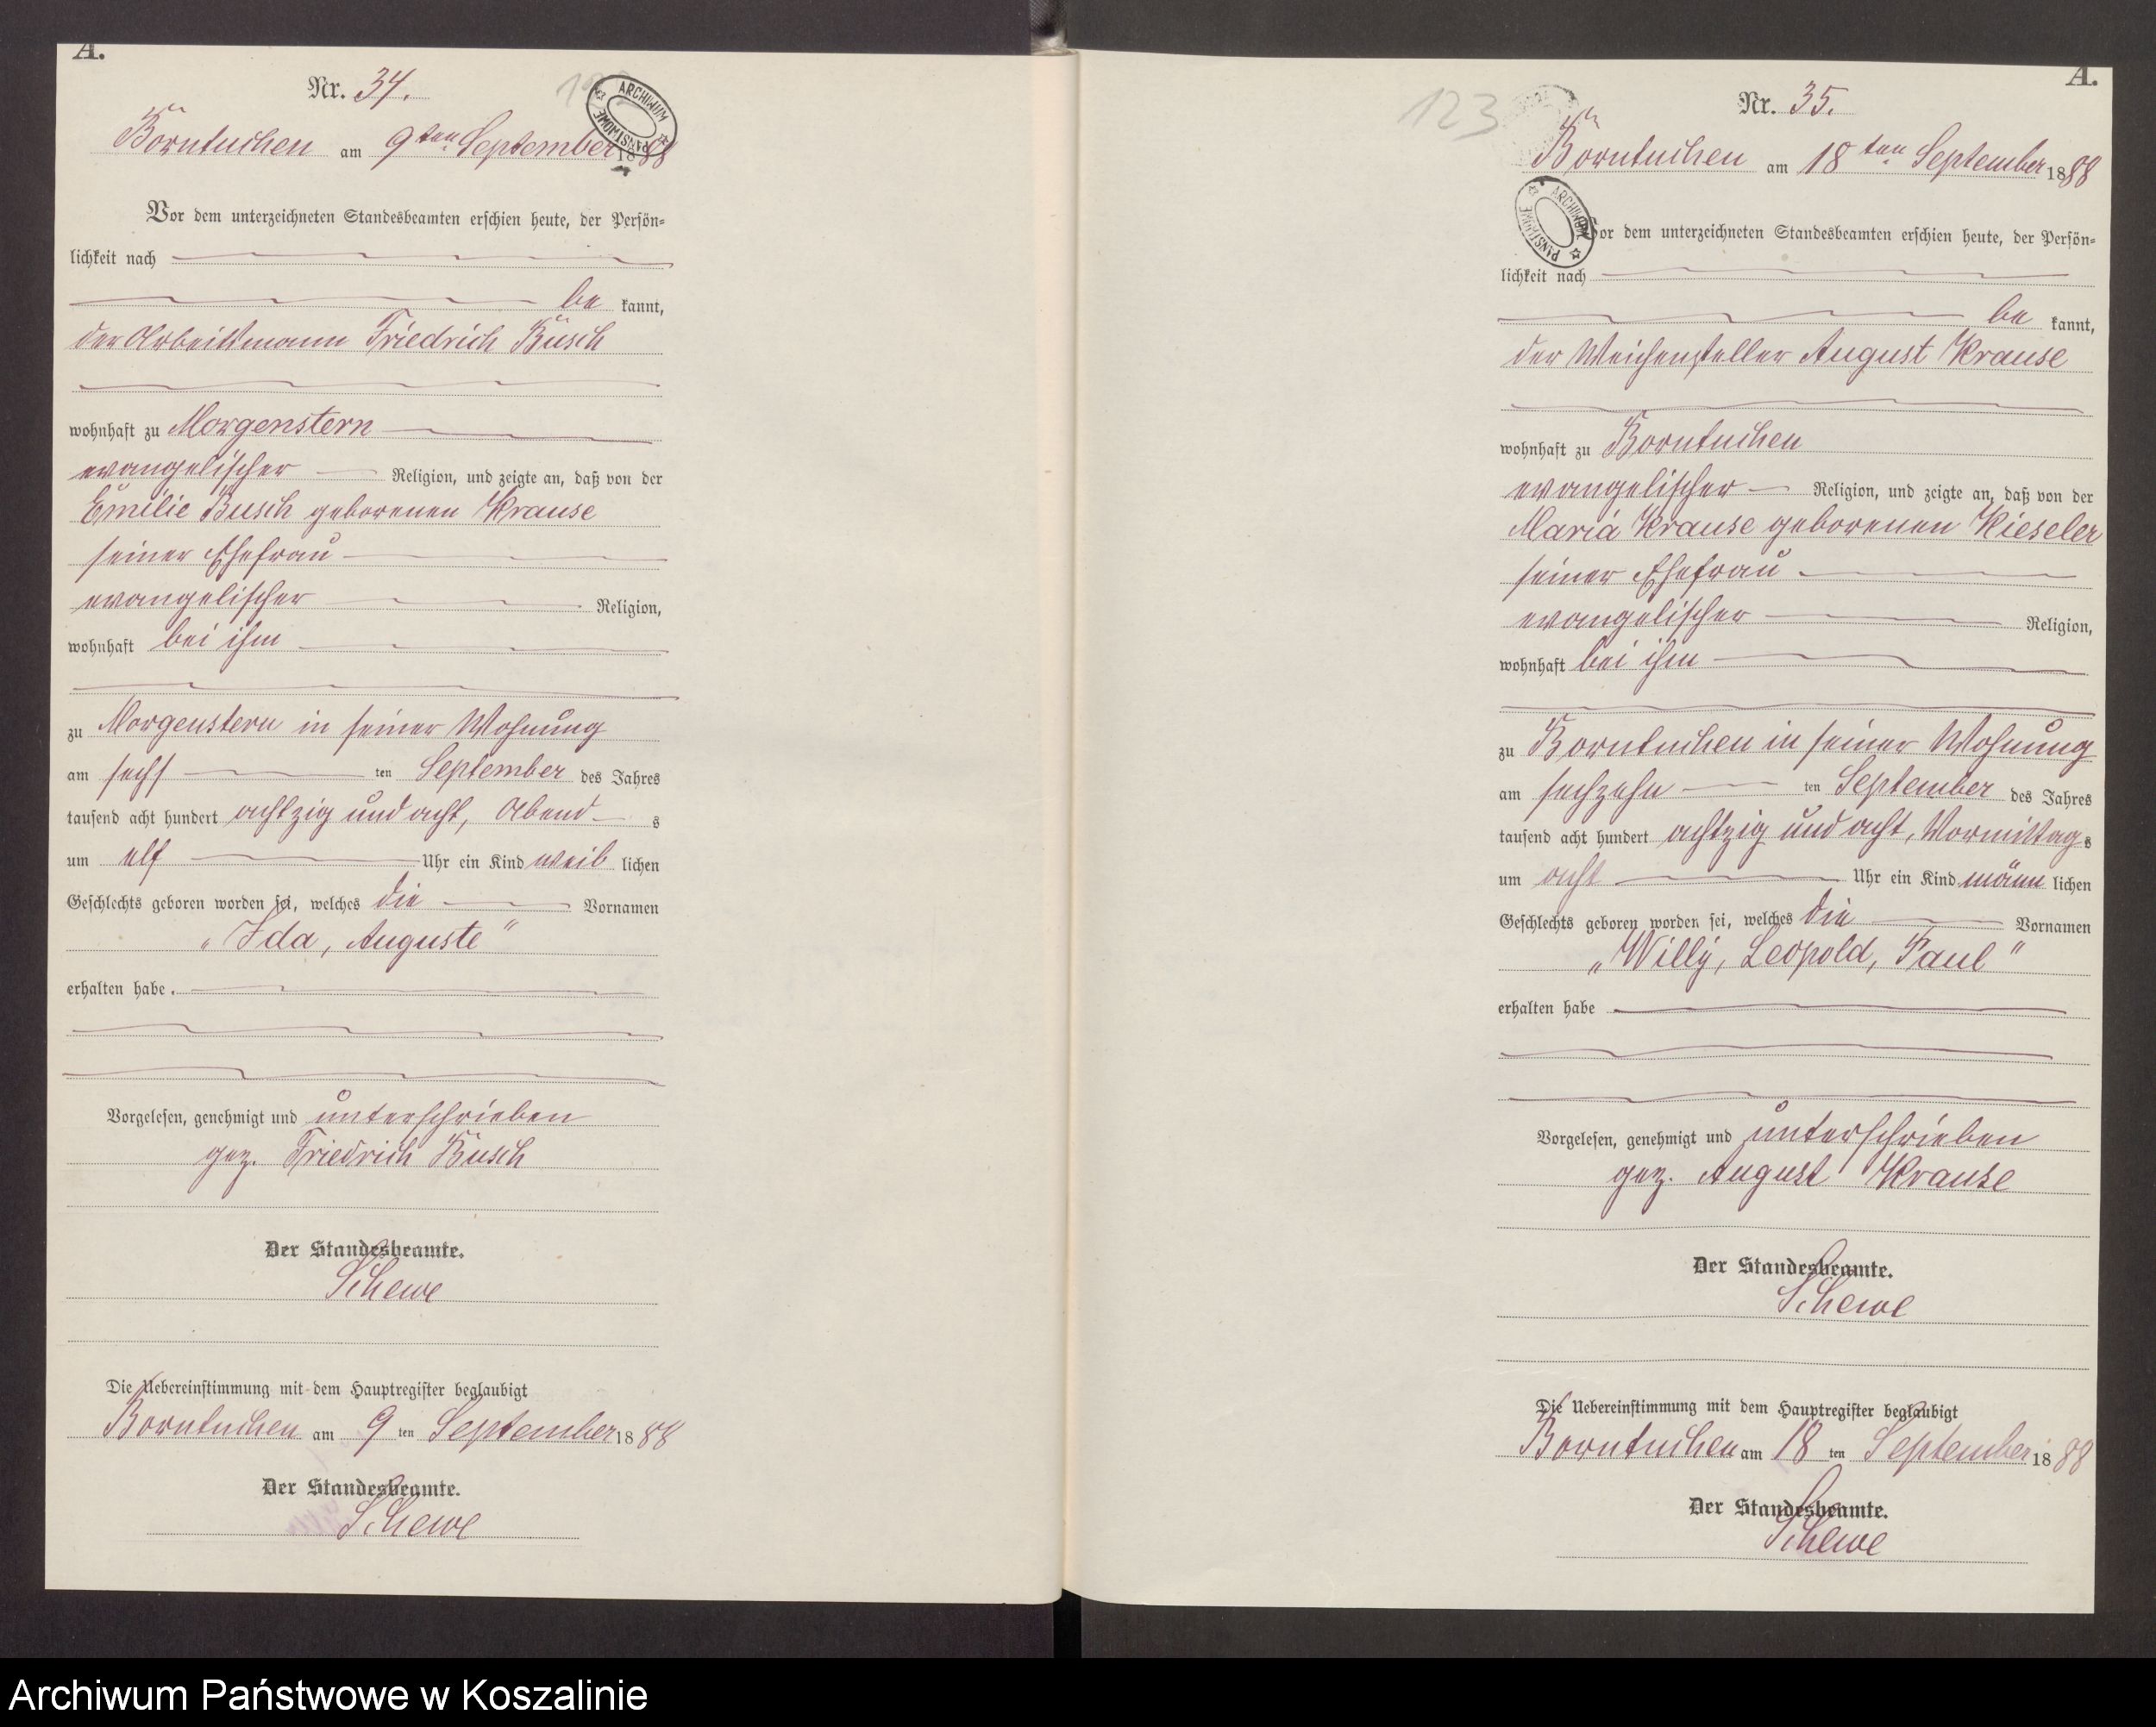 A.
Nr. 34.
ARCHIWUM PAŃSTWOWE
Borntuchen am 9ten September 1888
Vor dem unterzeichneten Standesbeamten erschien heute, der Persön-
lichkeit nach
be kannt,
der Arbeitsmann Friedrich Busch
wohnhaft zu Morgenstern
evangelischer Religion, und zeigte an, daß von der
Emilie Busch geborenen Krause
seiner Ehefrau
evangelischer Religion,
wohnhaft bei ihm
zu Morgenstern in seiner Wohnung
am sechs ten September des Jahres
tausend acht hundert achtzig und acht, Abend s
um elf Uhr ein Kind weib lichen
Geschlechts geboren worden sei, welches die Vornamen
„Ida, Auguste“
erhalten habe.
Vorgelesen, genehmigt und unterschrieben
gez. Friedrich Busch
Der Standesbeamte.
Schewe
Die Uebereinstimmung mit dem Hauptregister beglaubigt
Borntuchen am 9 ten September 1888
Der Standesbeamte.
Schewe
A.
123
Nr. 35.
Borntuchen am 18ten September 1888
ARCHIWUM PAŃSTWOWE
Vor dem unterzeichneten Standesbeamten erschien heute, der Persön-
lichkeit nach
be kannt,
der Weichensteller August Krause
wohnhaft zu Borntuchen
evangelischer Religion, und zeigte an, daß von der
Maria Krause geborenen Kieseler
seiner Ehefrau
evangelischer Religion,
wohnhaft bei ihm
zu Borntuchen in seiner Wohnung
am sechzehn ten September des Jahres
tausend acht hundert achtzig und acht, Vormittag s
um acht Uhr ein Kind männ lichen
Geschlechts geboren worden sei, welches die Vornamen
„Willy, Leopold, Paul“
erhalten habe
Vorgelesen, genehmigt und unterschrieben
gez. August Krause
Der Standesbeamte.
Schewe
Die Uebereinstimmung mit dem Hauptregister beglaubigt
Borntuchen am 18 ten September 1888
Der Standesbeamte.
Schewe
Archiwum Państwowe w Koszalinie